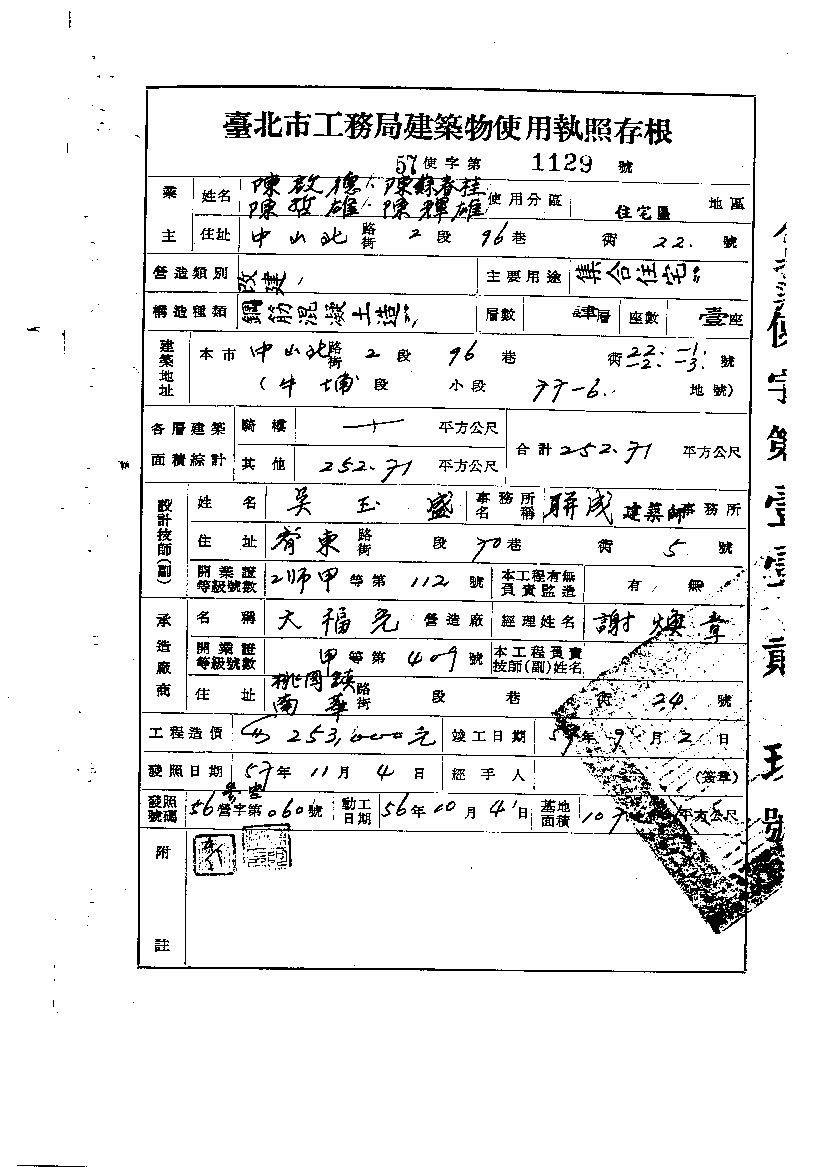 臺北市工務局建築物使用執照存根
57使字第 1129 號
業主 姓名 陳啟德、陳蘇春桂 陳哲雄、陳輝雄 使用分區 住宅區 地區
住址 中山北路街 2 段 96 巷 衖 22. 號
營造類別 改建 主要用途 集合住宅
構造種類 鋼筋混凝土造 層數 肆層 座數 壹座
建築地址 本市 中山北路街 2 段 96 巷 衖 22. -1. -2. -3. 號
(牛埔段 小段 77-6. 地號)
各層建築面積綜計 騎樓 平方公尺 合計 252.71 平方公尺
其他 252.71 平方公尺
設計技師(副) 姓名 吳玉盛 事務所名稱 聯成建築師事務所
住址 齊東路街 段 70巷 衖 5 號
開業證等級號數 師甲等第 112 號 本工程有無負責監造 有 無
承造廠商 名稱 大福 營造廠 經理姓名 謝煥章
開業證等級號數 甲等第 409 號 本工程負責技師(副)姓名
住址 桃園鎮南華路街 段 巷 衖 24. 號
工程造價 253,000元 竣工日期 57年 9月 2日
發照日期 57年 11月 4日 經手人 (簽章)
發照號碼 56營字第060號 動工日期 56年10月4日 基地面積 107 平方公尺
附註
使字第壹壹貳玖號